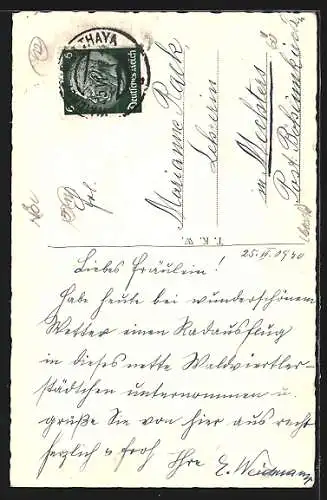 THAYA
6 Deutsches Reich 6
Frl.
Marianne Rack
Lehrerin
in Mechters
Post Böheimkirchen
T. K. W.
25. V. 1940
Liebes Fräulein!
Habe heute bei wunderschönem
Wetter einen Radausflug
in dieses nette Waldviertler-
städtchen unternommen u.
grüße Sie von hier aus recht
herzlich u froh Ihre E. Weidmann